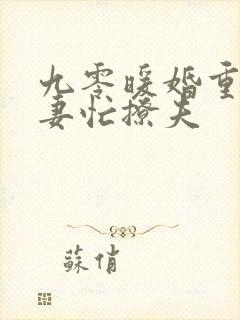 九零暖婚重
妻忙撩夫
蘇俏